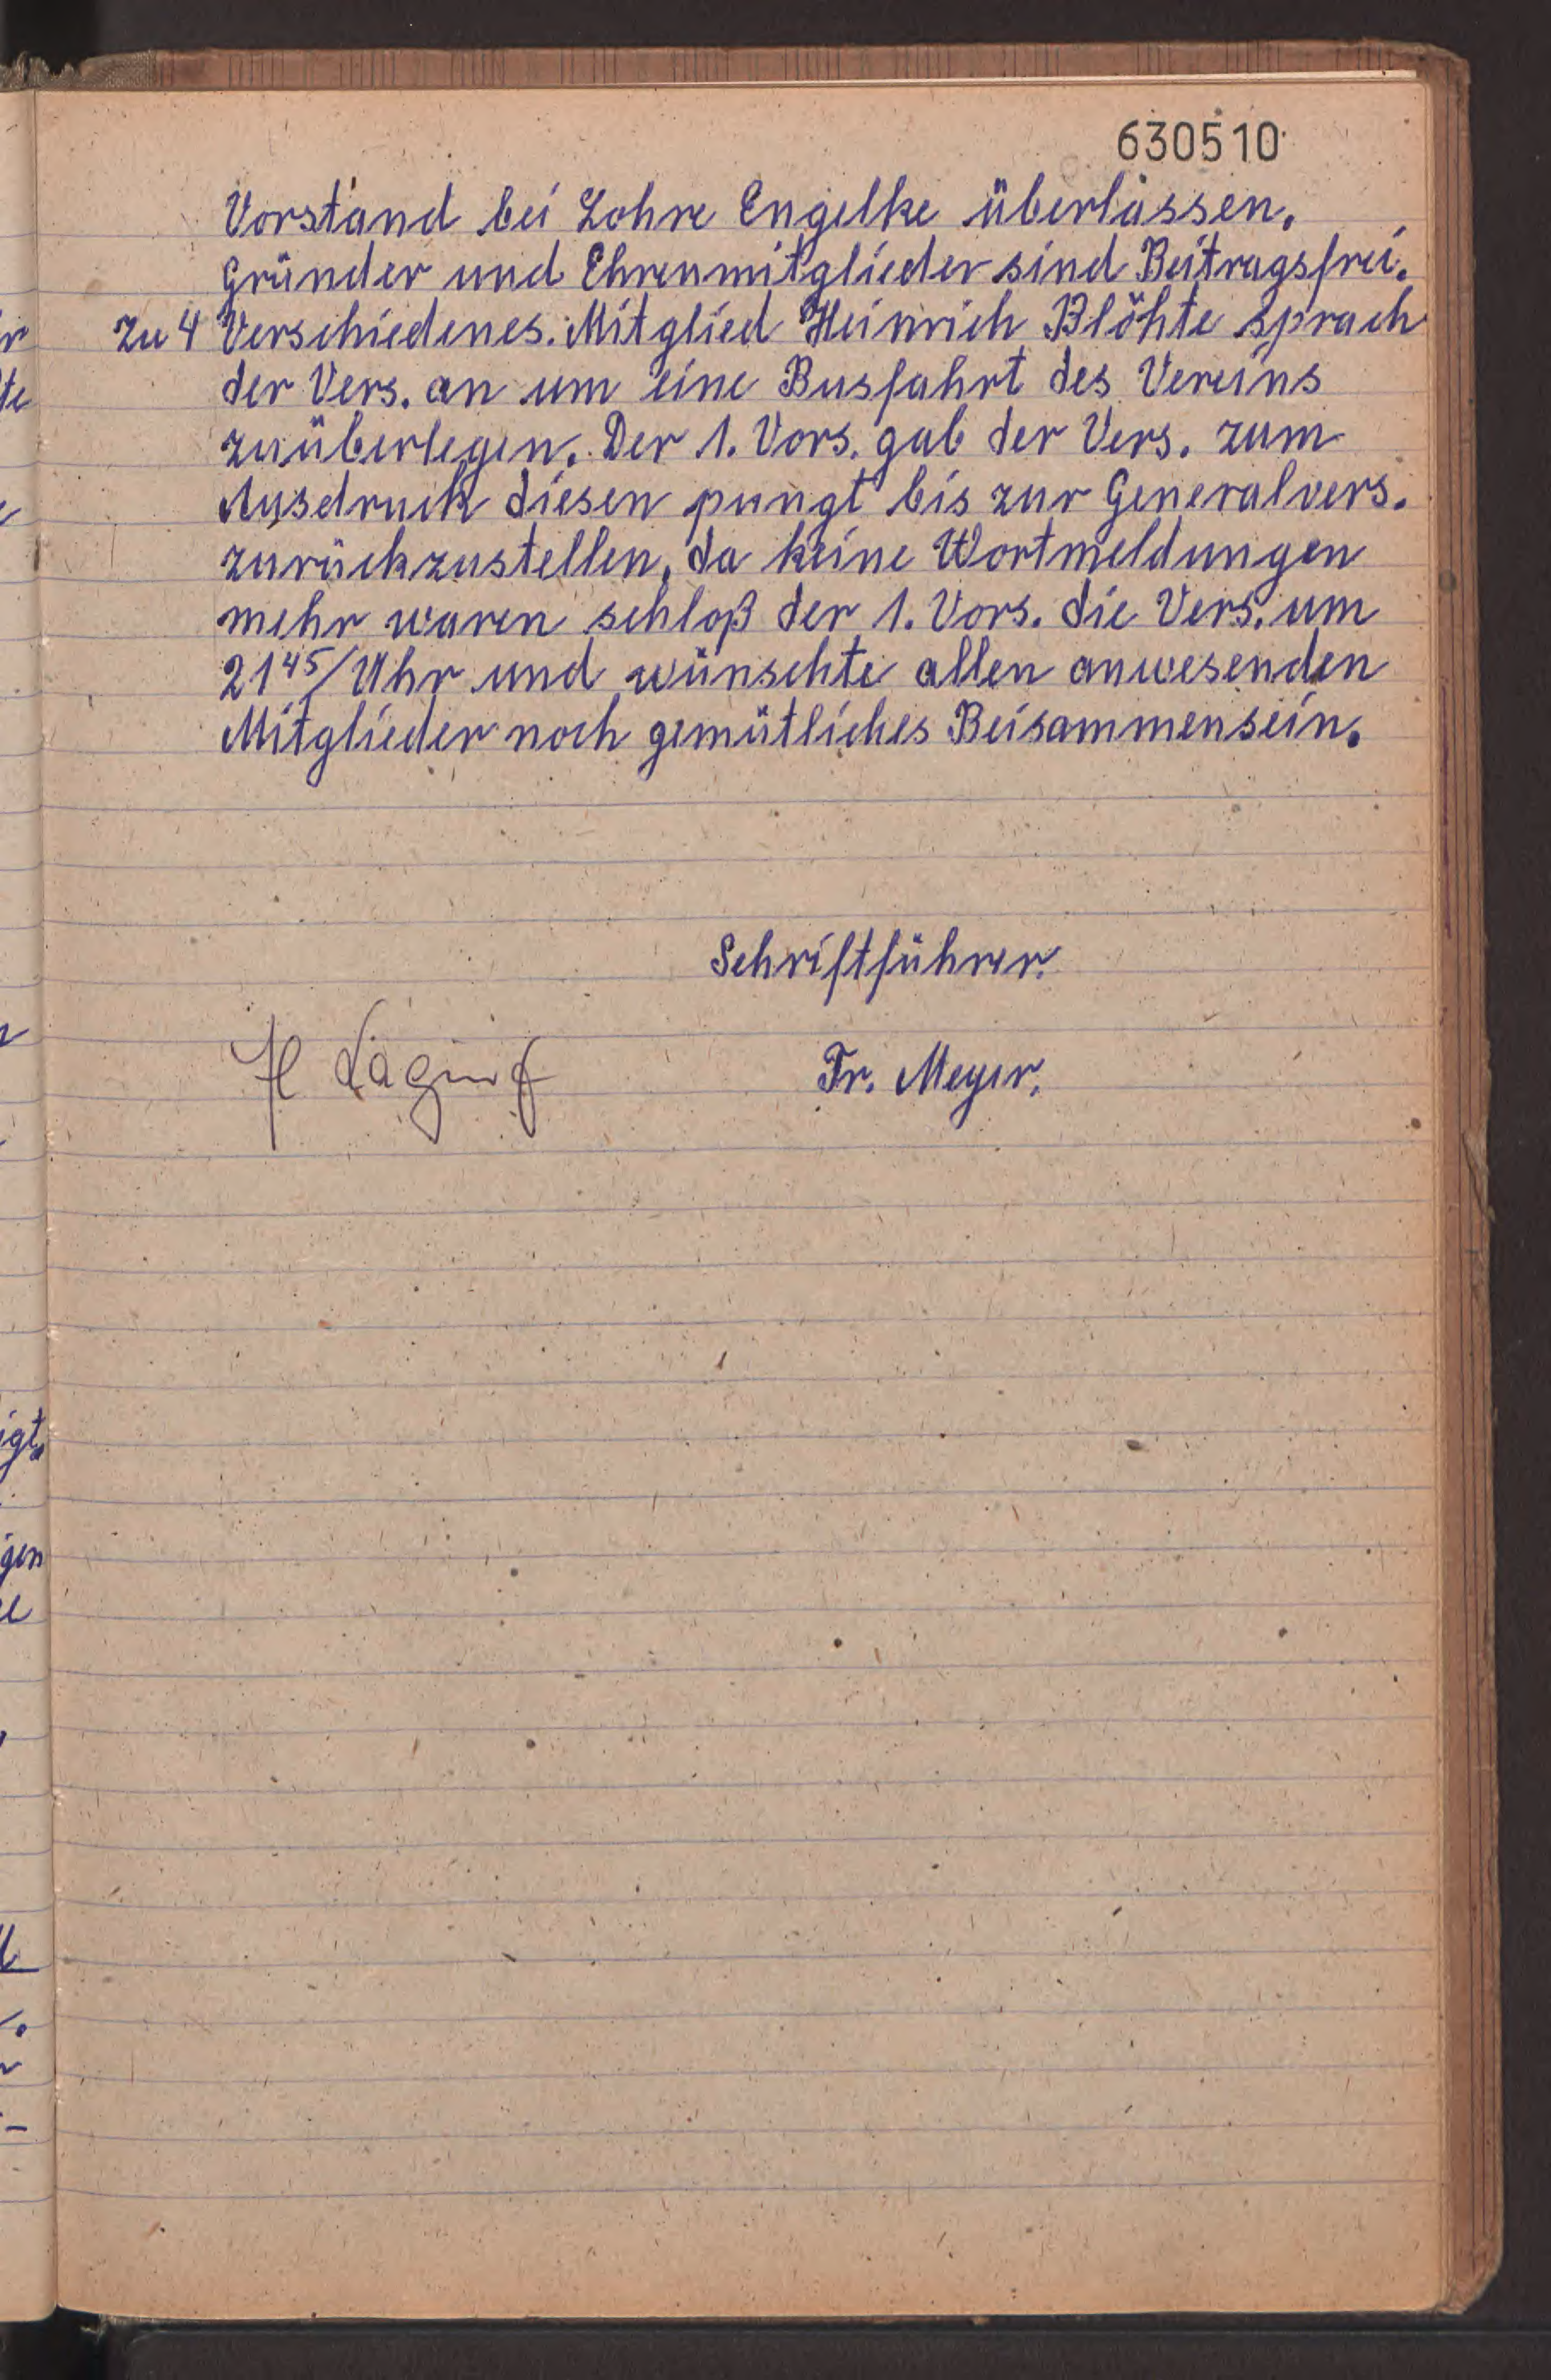 630510
Vorstand bei Lohre Engelke überlassen.
Gründer und Ehrenmitglieder sind Beitragsfrei.
Zu 4 Verschiedenes. Mitglied Heinrich Blöhte sprach
der Vers. an um eine Busfahrt des Vereins
zuüberlegen. Der 1. Vors. gab der Vers. zum
Ausdruck diesen pungt bis zur Generalvers.
zurückzustellen, da keine Wortmeldungen
mehr waren schloß der 1. Vors. die Vers. um
21⁴⁵/Uhr und wünschte allen anwesenden
Mitglieder noch gemütliches Beisammensein.
Schriftführer.
H Laging Fr. Meyer.
igt.
gen